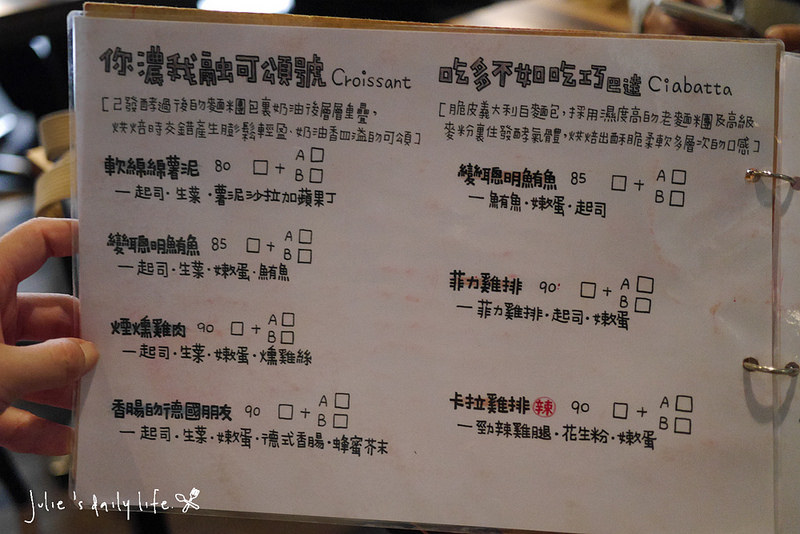 你濃我融可頌號 Croissant
[已發酵過後的麵糰包裹奶油後層層重疊,
烘焙時交錯產生膨鬆輕盈、奶油香四溢的可頌]
軟綿綿薯泥 80 □ + A □ B □
一起司·生菜·薯泥沙拉加蘋果丁
變聰明鮪魚 85 □ + A □ B □
一起司·生菜·嫩蛋·鮪魚
煙燻雞肉 90 □ + A □ B □
一起司·生菜·嫩蛋·燻雞絲
香腸的德國朋友 90 □ + A □ B □
一起司·生菜·嫩蛋·德式香腸·蜂蜜芥末
吃多不如吃巧巴達 Ciabatta
[脆皮義大利白麵包,採用濕度高的老麵糰及高級
麥粉裹住發酵氣體,烘焙出酥脆柔軟多層次的口感]
變聰明鮪魚 85 □ + A □ B □
一鮪魚·嫩蛋·起司
菲力雞排 90 □ + A □ B □
一菲力雞排·起司·嫩蛋
卡拉雞排 辣 90 □ + A □ B □
一勁辣雞腿·花生粉·嫩蛋
Julie's daily life.